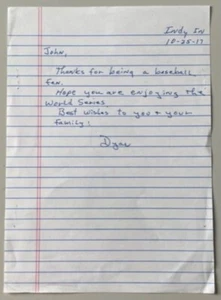 Indy In
10-25-17
John,
Thanks for being a baseball
fan.
Hope you are enjoying the
World Series
Best wishes to you + your
family!